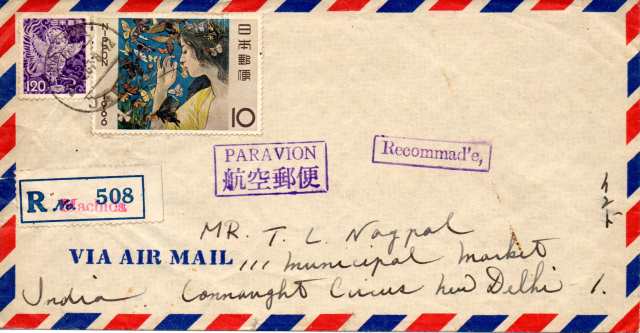 120
日本郵便
10
PAR AVION
航空郵便
Recommad'e,
R No. 508
VIA AIR MAIL
MR. T. L. Nagpal
111 Municipal Market
Connaught Circus New Delhi 1.
India